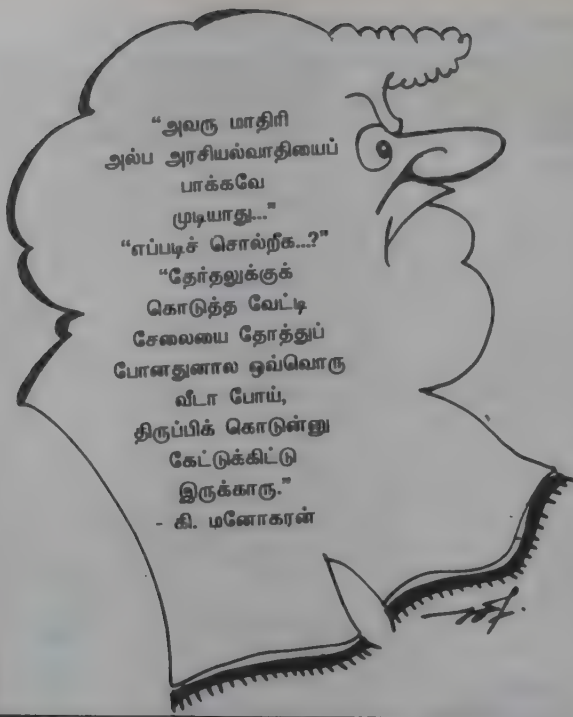 “அவரு மாதிரி
அல்ப அரசியல்வாதியைப்
பாக்கவே
முடியாது...”
“எப்படிச் சொல்றீக...?”
“தேர்தலுக்குக்
கொடுத்த வேட்டி
சேலையை தோத்துப்
போனதுனால ஒவ்வொரு
வீடா போய்,
திருப்பிக் கொடுன்னு
கேட்டுக்கிட்டு
இருக்காரு.”
- கி. மனோகரன்